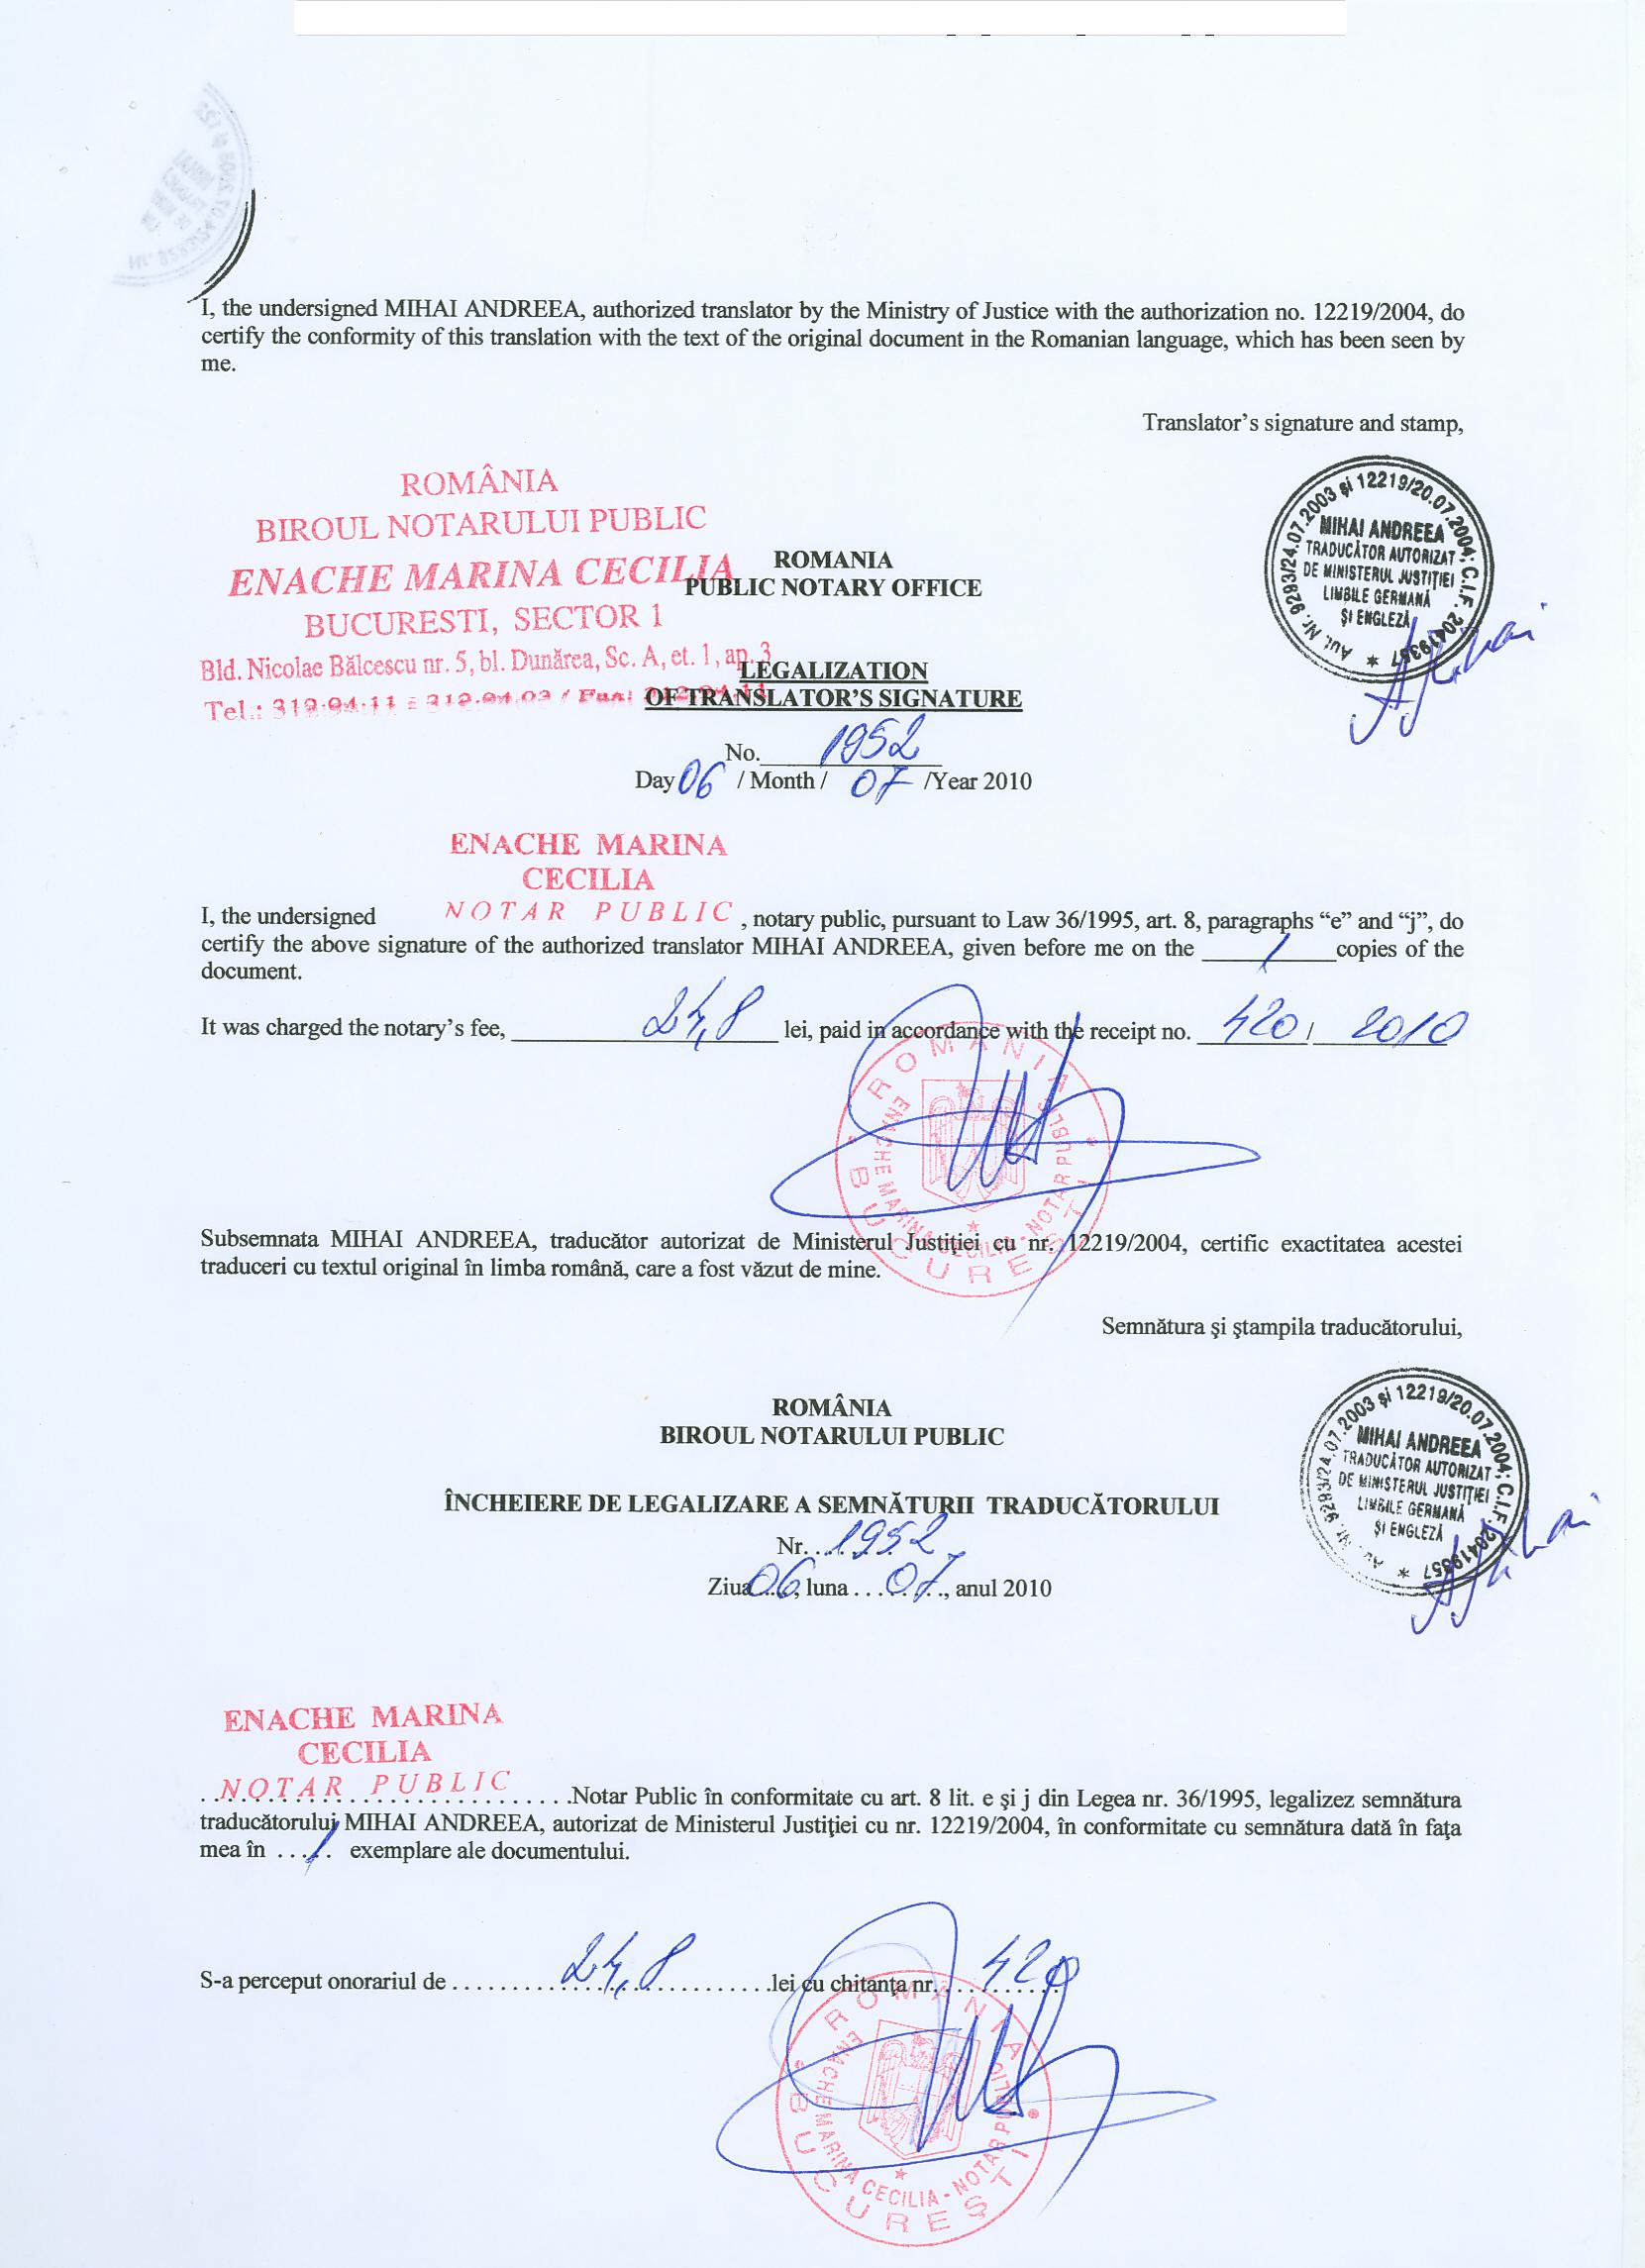 I, the undersigned MIHAI ANDREEA, authorized translator by the Ministry of Justice with the authorization no. 12219/2004, do
certify the conformity of this translation with the text of the original document in the Romanian language, which has been seen by
me.
Translator’s signature and stamp,
Aut. Nr. 9293/24.07.2003 şi 12219/20.07.2004; C.I.F. 20419357 *
MIHAI ANDREEA
TRADUCĂTOR AUTORIZAT
DE MINISTERUL JUSTIŢIEI
LIMBILE GERMANĂ
ŞI ENGLEZĂ
ROMÂNIA
BIROUL NOTARULUI PUBLIC
ENACHE MARINA CECILIA
BUCURESTI, SECTOR 1
Bld. Nicolae Bălcescu nr. 5, bl. Dunărea, Sc. A, et. 1, ap. 3
Tel.: 312-94-11
ROMANIA
PUBLIC NOTARY OFFICE
LEGALIZATION
OF TRANSLATOR’S SIGNATURE
No. 1952
Day 06 / Month / 07 /Year 2010
ENACHE MARINA
CECILIA
NOTAR PUBLIC
I, the undersigned , notary public, pursuant to Law 36/1995, art. 8, paragraphs “e” and “j”, do
certify the above signature of the authorized translator MIHAI ANDREEA, given before me on the 1 copies of the
document.
It was charged the notary’s fee, 24,8 lei, paid in accordance with the receipt no. 420 / 2010
ROMANIA
BUCUREŞTI
ENACHE MARINA CECILIA - NOTAR PUBLIC
Subsemnata MIHAI ANDREEA, traducător autorizat de Ministerul Justiţiei cu nr. 12219/2004, certific exactitatea acestei
traduceri cu textul original în limba română, care a fost văzut de mine.
Semnătura şi ştampila traducătorului,
Aut. Nr. 9293/24.07.2003 şi 12219/20.07.2004; C.I.F. 20419357 *
MIHAI ANDREEA
TRADUCĂTOR AUTORIZAT
DE MINISTERUL JUSTIŢIEI
LIMBILE GERMANĂ
ŞI ENGLEZĂ
ROMÂNIA
BIROUL NOTARULUI PUBLIC
ÎNCHEIERE DE LEGALIZARE A SEMNĂTURII TRADUCĂTORULUI
Nr. 1952
Ziua 06, luna 07, anul 2010
ENACHE MARINA
CECILIA
NOTAR PUBLIC
Notar Public în conformitate cu art. 8 lit. e şi j din Legea nr. 36/1995, legalizez semnătura
traducătorului MIHAI ANDREEA, autorizat de Ministerul Justiţiei cu nr. 12219/2004, în conformitate cu semnătura dată în faţa
mea în 1 exemplare ale documentului.
S-a perceput onorariul de 24,8 lei cu chitanţa nr. 420
ROMANIA
BUCUREŞTI
ENACHE MARINA CECILIA - NOTAR PUBLIC